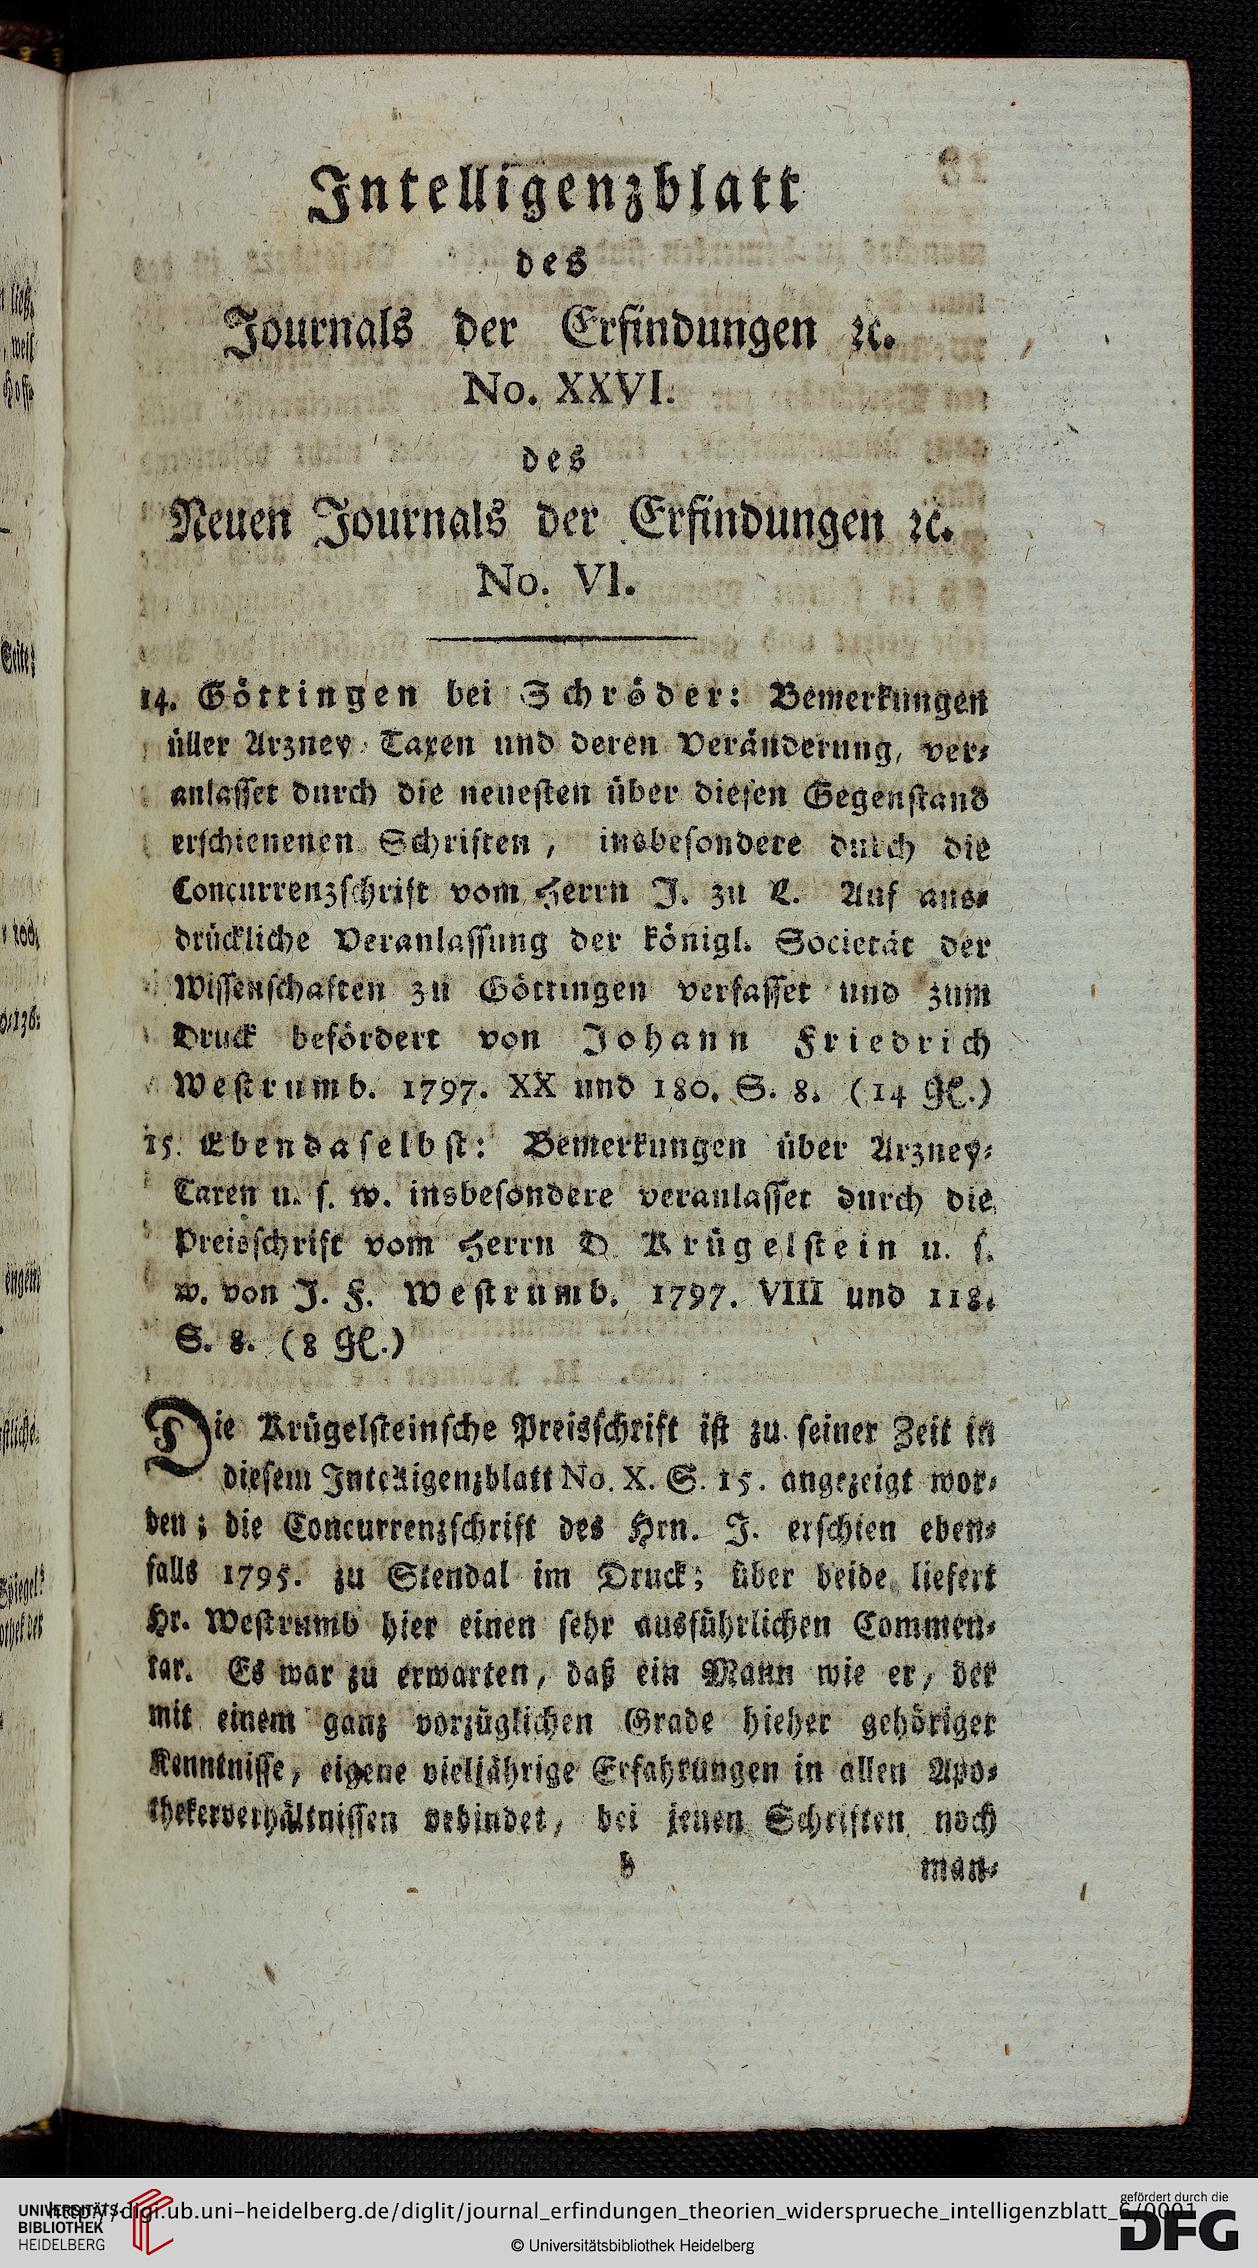 Intelligenzblatt
des
Journals der Erfindungen ꝛc.
No. XXVI.
des
Neuen Journals der Erfindungen ꝛc.
No. VI.
14. Göttingen bei Schröder: Bemerkungen
üller Arzney-Taxen und deren Veränderung, ver-
anlasset durch die neuesten über diesen Gegenstand
erschienenen Schriften, insbesondere durch die
Concurrenzschrift vom Herrn J. zu L. Auf aus-
drückliche Veranlassung der königl. Societät der
Wissenschaften zu Göttingen verfasset und zum
Druck befördert von Johann Friedrich
Westrumb. 1797. XX und 180. S. 8. (14 gl.)
15. Ebendaselbst: Bemerkungen über Arzney-
Taxen u. s. w. insbesondere veranlasset durch die
Preisschrift vom Herrn D. Krügelstein u. s.
w. von J. F. Westrumb. 1797. VIII und 118.
S. 8. (8 gl.)
Die Krügelsteinsche Preisschrift ist zu seiner Zeit in
diesem Intelligenzblatt No. X. S. 15. angezeigt wor-
den; die Concurrenzschrift des Hrn. J. erschien eben-
falls 1795. zu Stendal im Druck; über beide liefert
Hr. Westrumb hier einen sehr ausführlichen Commen-
tar. Es war zu erwarten, daß ein Mann wie er, der
mit einem ganz vorzüglichen Grade hieher gehöriger
Kenntnisse, eigene vieljährige Erfahrungen in allen Apo-
thekerverhältnissen vebindet, bei jenen Schriften noch
b man-
UNIVERSITÄTS-
BIBLIOTHEK
HEIDELBERG
http://digi.ub.uni-heidelberg.de/diglit/journal_erfindungen_theorien_widersprueche_intelligenzblatt_6/0001
© Universitätsbibliothek Heidelberg
gefördert durch die
DFG